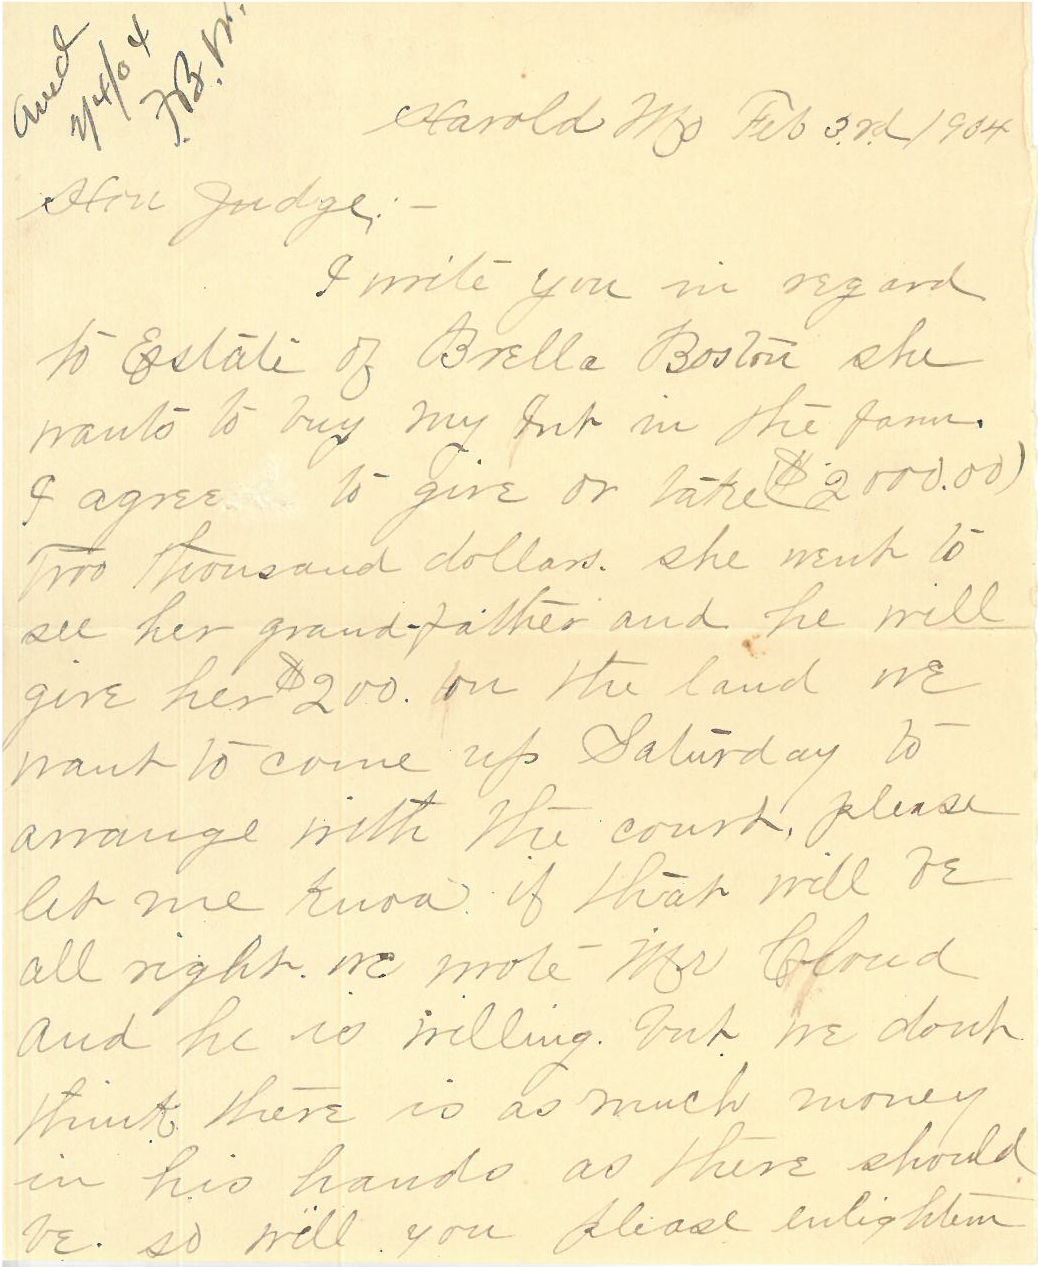 Ansd
2/4/04
F.B.W.
Harold Mo Feb 3rd, 1904
Hon Judge; -
I write you in regard
to Estate of Brella Boston she
wants to buy my Int in the farm.
I agree to give or take ($2000.00)
Two thousand dollars. she went to
see her grand-father and he will
give her $200. on the land we
want to come up Saturday to
arrange with the court, please
let me know if that will be
all right. we wrote Mr Cloud
and he is willing. but we dont
think there is as much money
in his hands as there should
be. so will you please enlighten